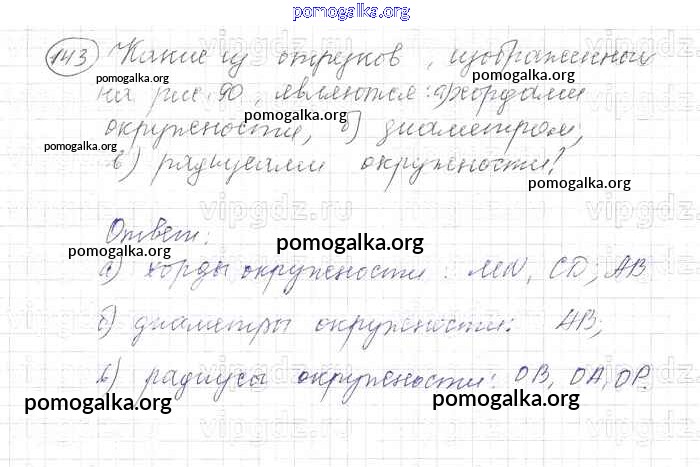 pomogalka.org
143 Какие из отрезков, изображенных
pomogalka.org pomogalka.org
на рис. 90, являются: а) хордами
pomogalka.org
окружности, б) диаметром,
pomogalka.org
в) радиусами окружности?
pomogalka.org
vipgdz.ru vipgdz.ru
Ответ:
pomogalka.org pomogalka.org
а) хорды окружности: MN, CD, AB
б) диаметры окружности: AB;
в) радиусы окружности: OB, OA, OP.
pomogalka.org pomogalka.org